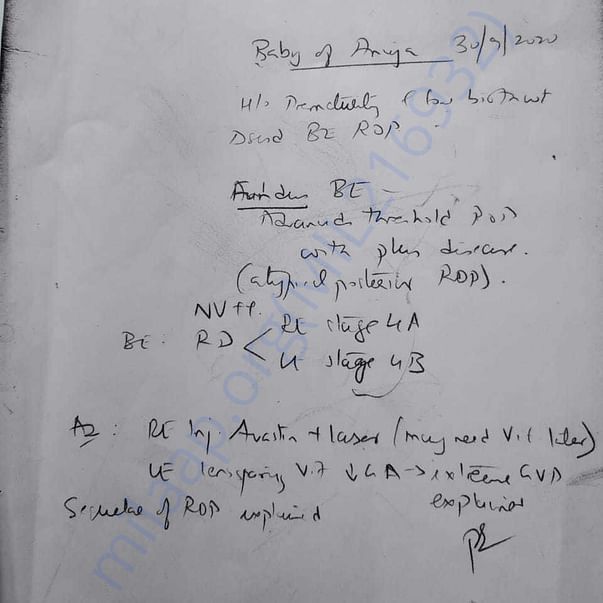 Baby of Anuja 30/9/2020
H/o Prematurity & low birth wt
BE ROP
Fundus BE -
Advanced threshold ROP
with plus disease.
(atypical posterior ROP).
NV ++.
BE: RD < RE stage 4A
LE stage 4B
RE Inj. Avastin + laser (may need Vit later)
LE lens sparing Vit ↓ GA → extreme GVP
explained
Sequelae of ROP explained
milaap.org(MIL216932)